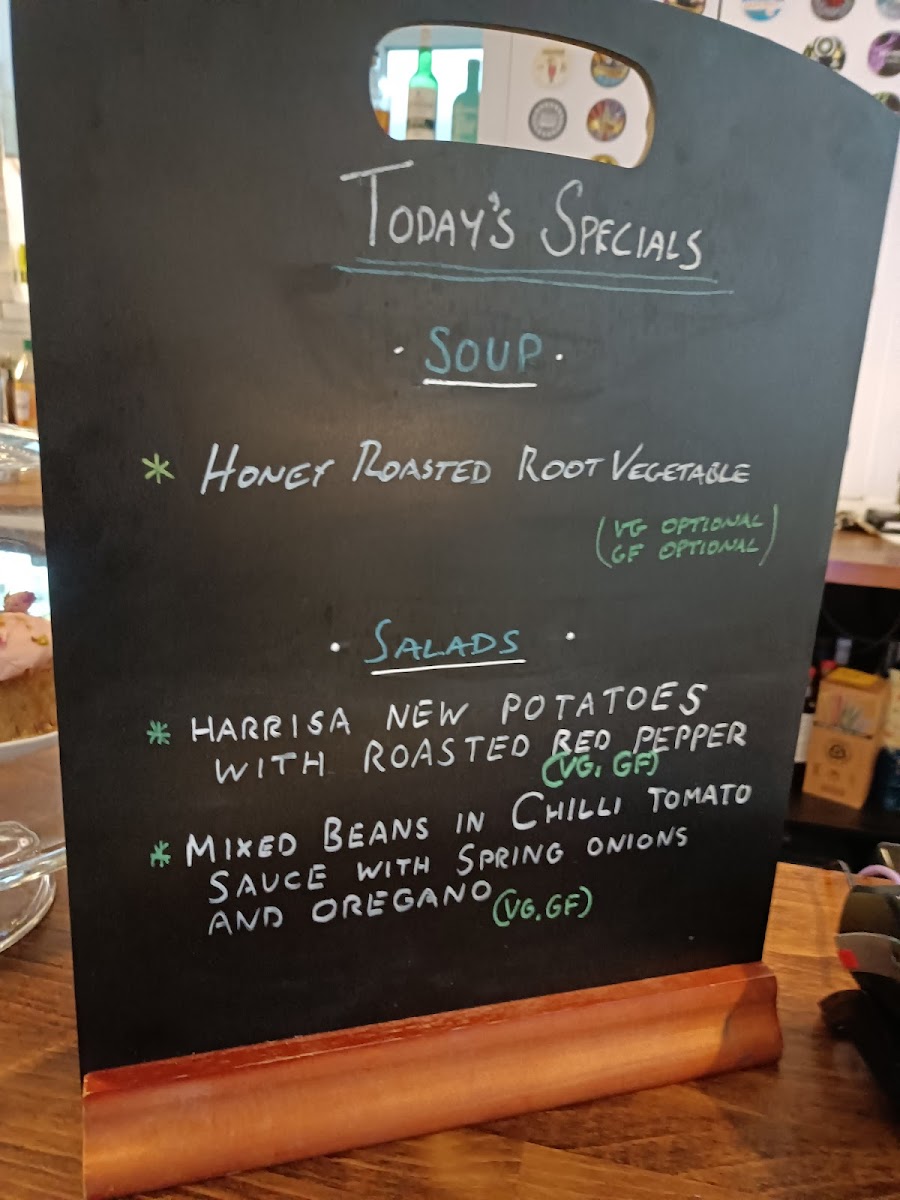 TODAY'S SPECIALS
· SOUP ·
* HONEY ROASTED ROOT VEGETABLE
(VG OPTIONAL
GF OPTIONAL)
· SALADS ·
* HARRISA NEW POTATOES
WITH ROASTED RED PEPPER
(VG, GF)
* MIXED BEANS IN CHILLI TOMATO
SAUCE WITH SPRING ONIONS
AND OREGANO (VG, GF)